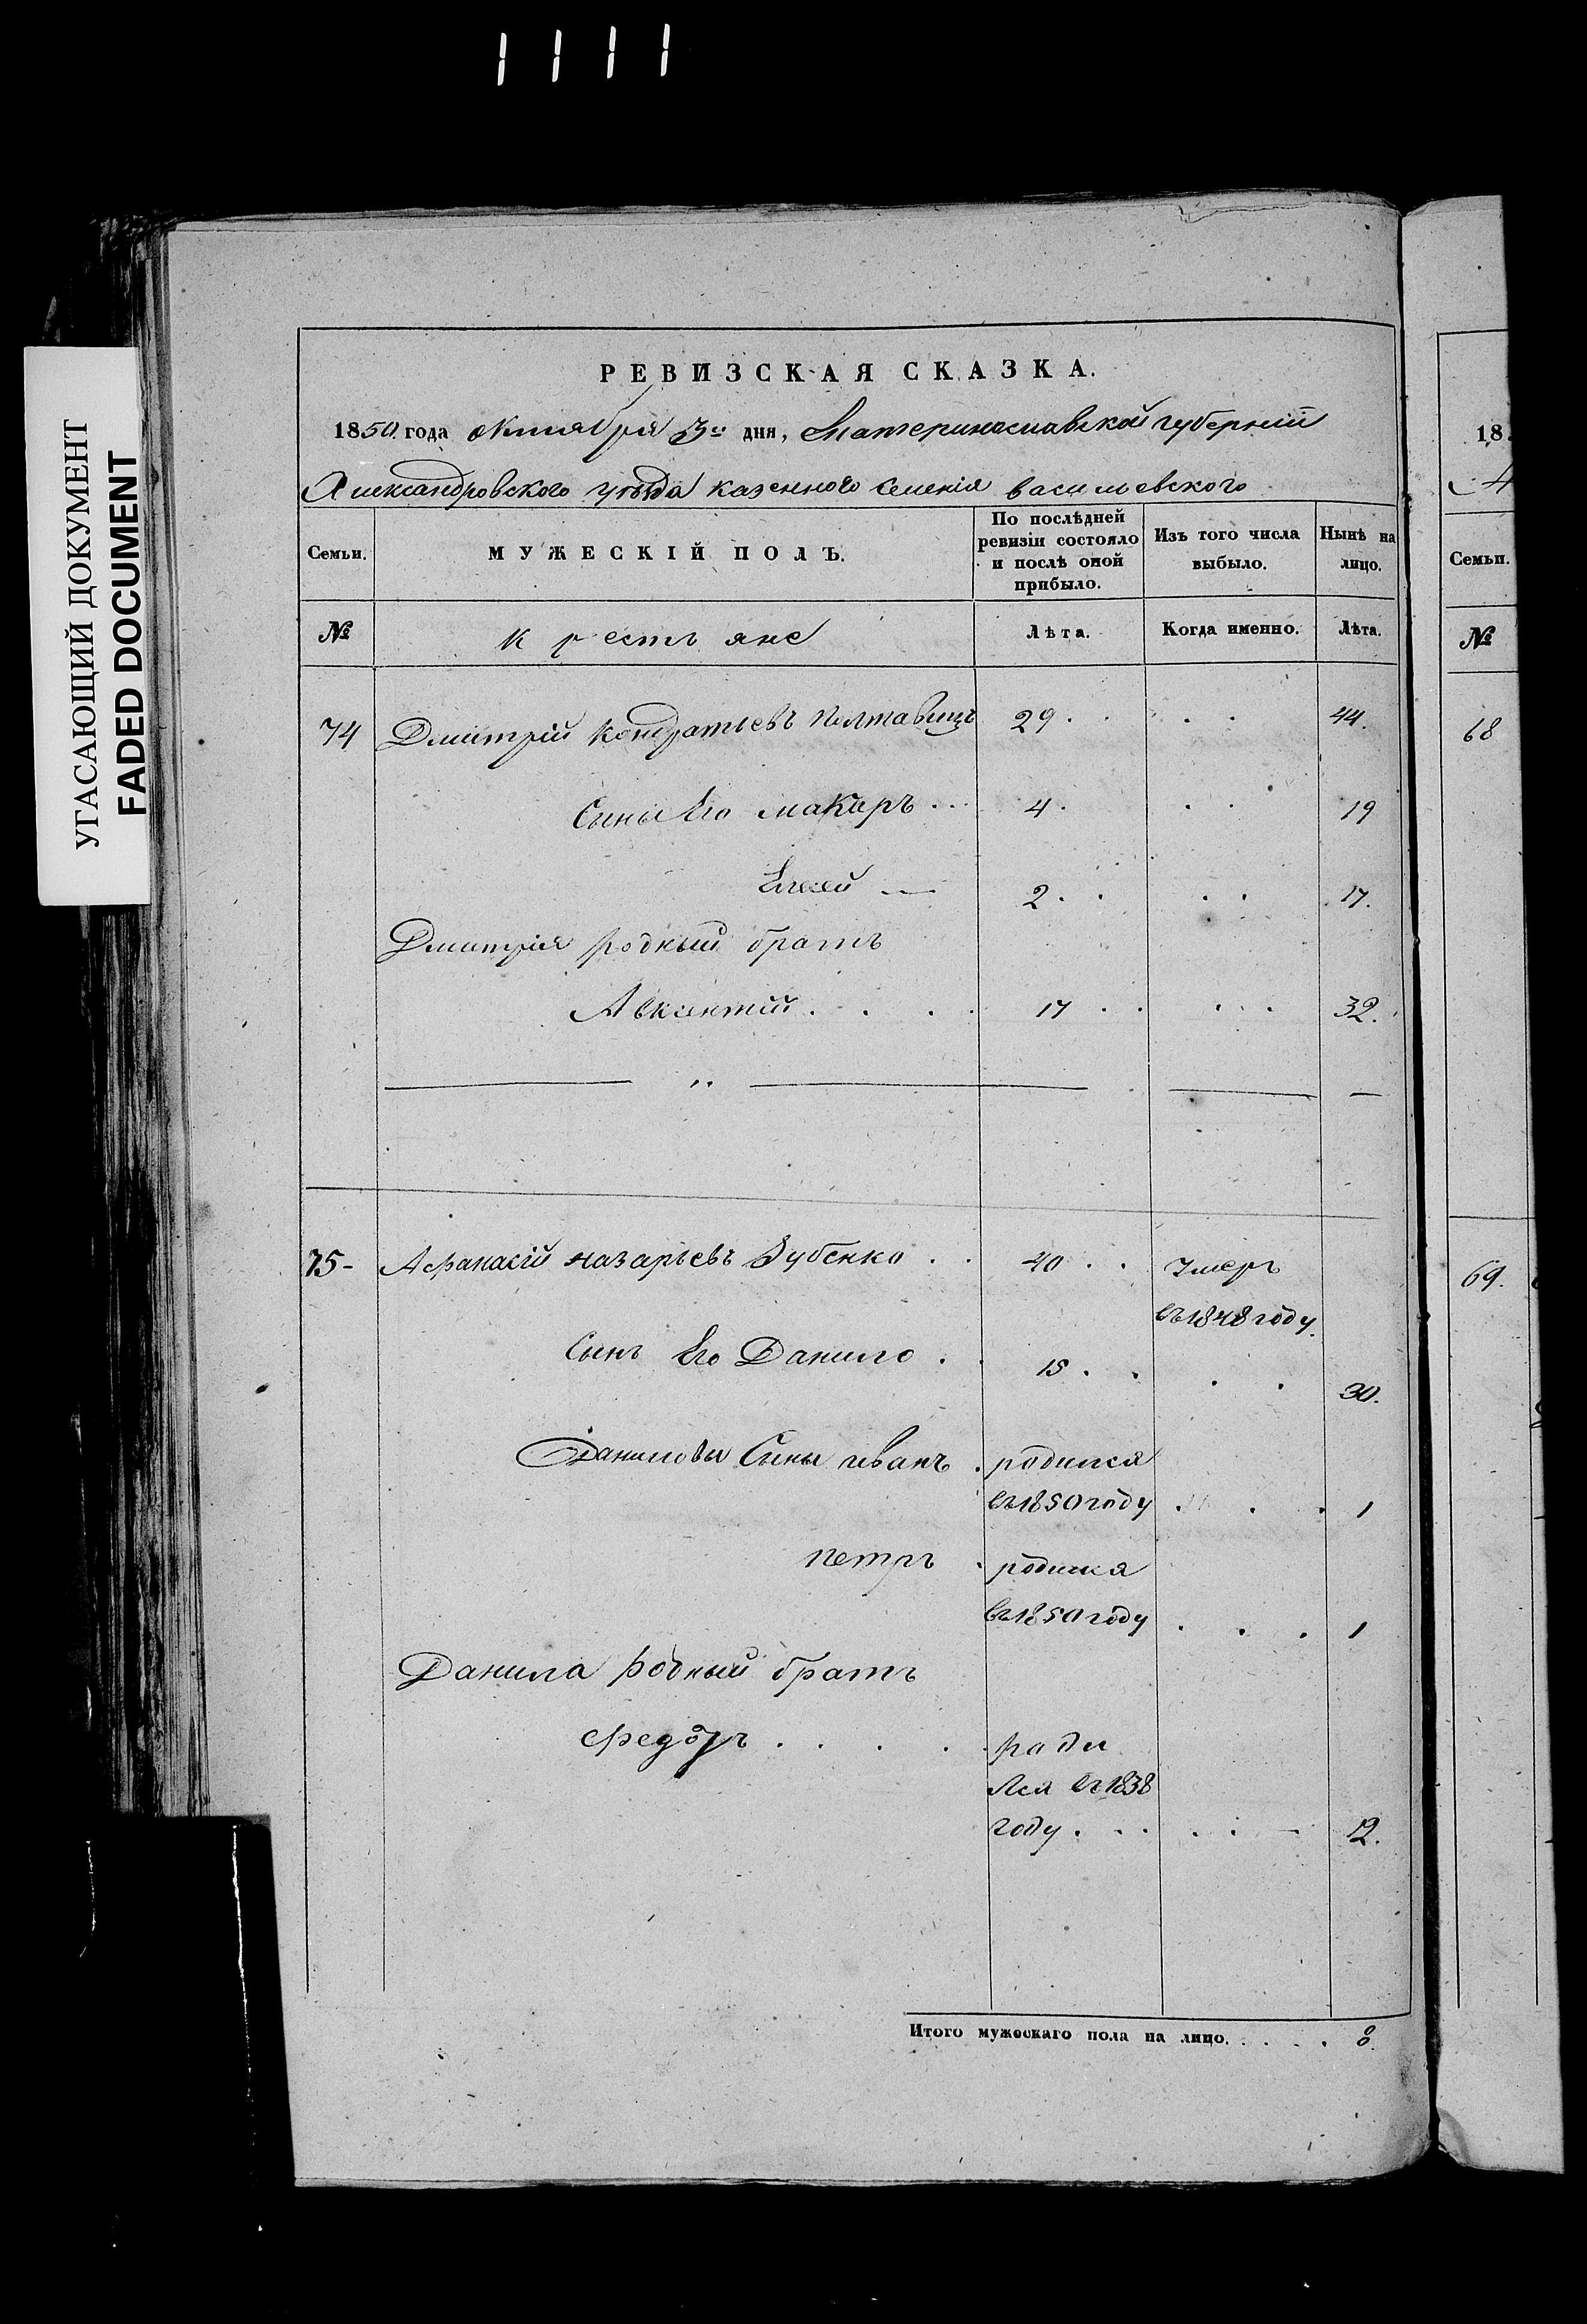 УГАСАЮЩИЙ ДОКУМЕНТ
FADED DOCUMENT
РЕВИЗСКАЯ СКАЗКА.
1850 года октября 3го дня, Екатеринославской губернии
Александровского уезда казенного Селенія васильевского
Семьи.
МУЖЕСКІЙ ПОЛЪ.
По послѣдней ревизіи состояло и послѣ оной прибыло.
Изъ того числа выбыло.
Нынѣ на лицо.
№
крестьяне
Лѣта.
Когда именно.
Лѣта.
74 Дмитрій Кондратьевъ Полтавицъ 29. 44.
Сыны Его макаръ 4. 19
Елисей 2. 17.
Дмитрія родный братъ
Авксентій 17 32.
75- Афанасій назарьевъ Зубенко 40 умеръ
въ 1848 году.
Сынъ Его Данило 15. 30.
Даниловы Сыны иванъ родился
въ 1850 году 1
петръ родился
въ 1850 году 1
Данила родный братъ
Федоръ роди
лся въ 1838
году. 12.
Итого мужескаго пола на лицо. 8.
18
Семьи.
№
68
69.